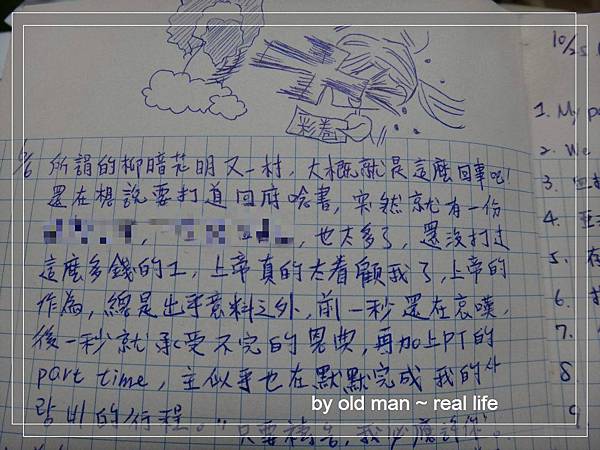 彩卷
5/6 所謂的柳暗花明又一村,大概就是這麼回事吧!
還在想說要打道回府唸書,突然就有一份
,也太多了,還沒打過
這麼多錢的工,上帝真的太眷顧我了,上帝的
作為,總是出乎意料之外,前一秒還在哀嘆,
後一秒就承受不完的恩典,再加上PT的
part time,主似乎也在默默完成我的
的行程。"只要禱告,我必應許你"。
10/25
1. My
2. We
3.
4.
5.
6.
7.
8.
9
by old man ~ real life